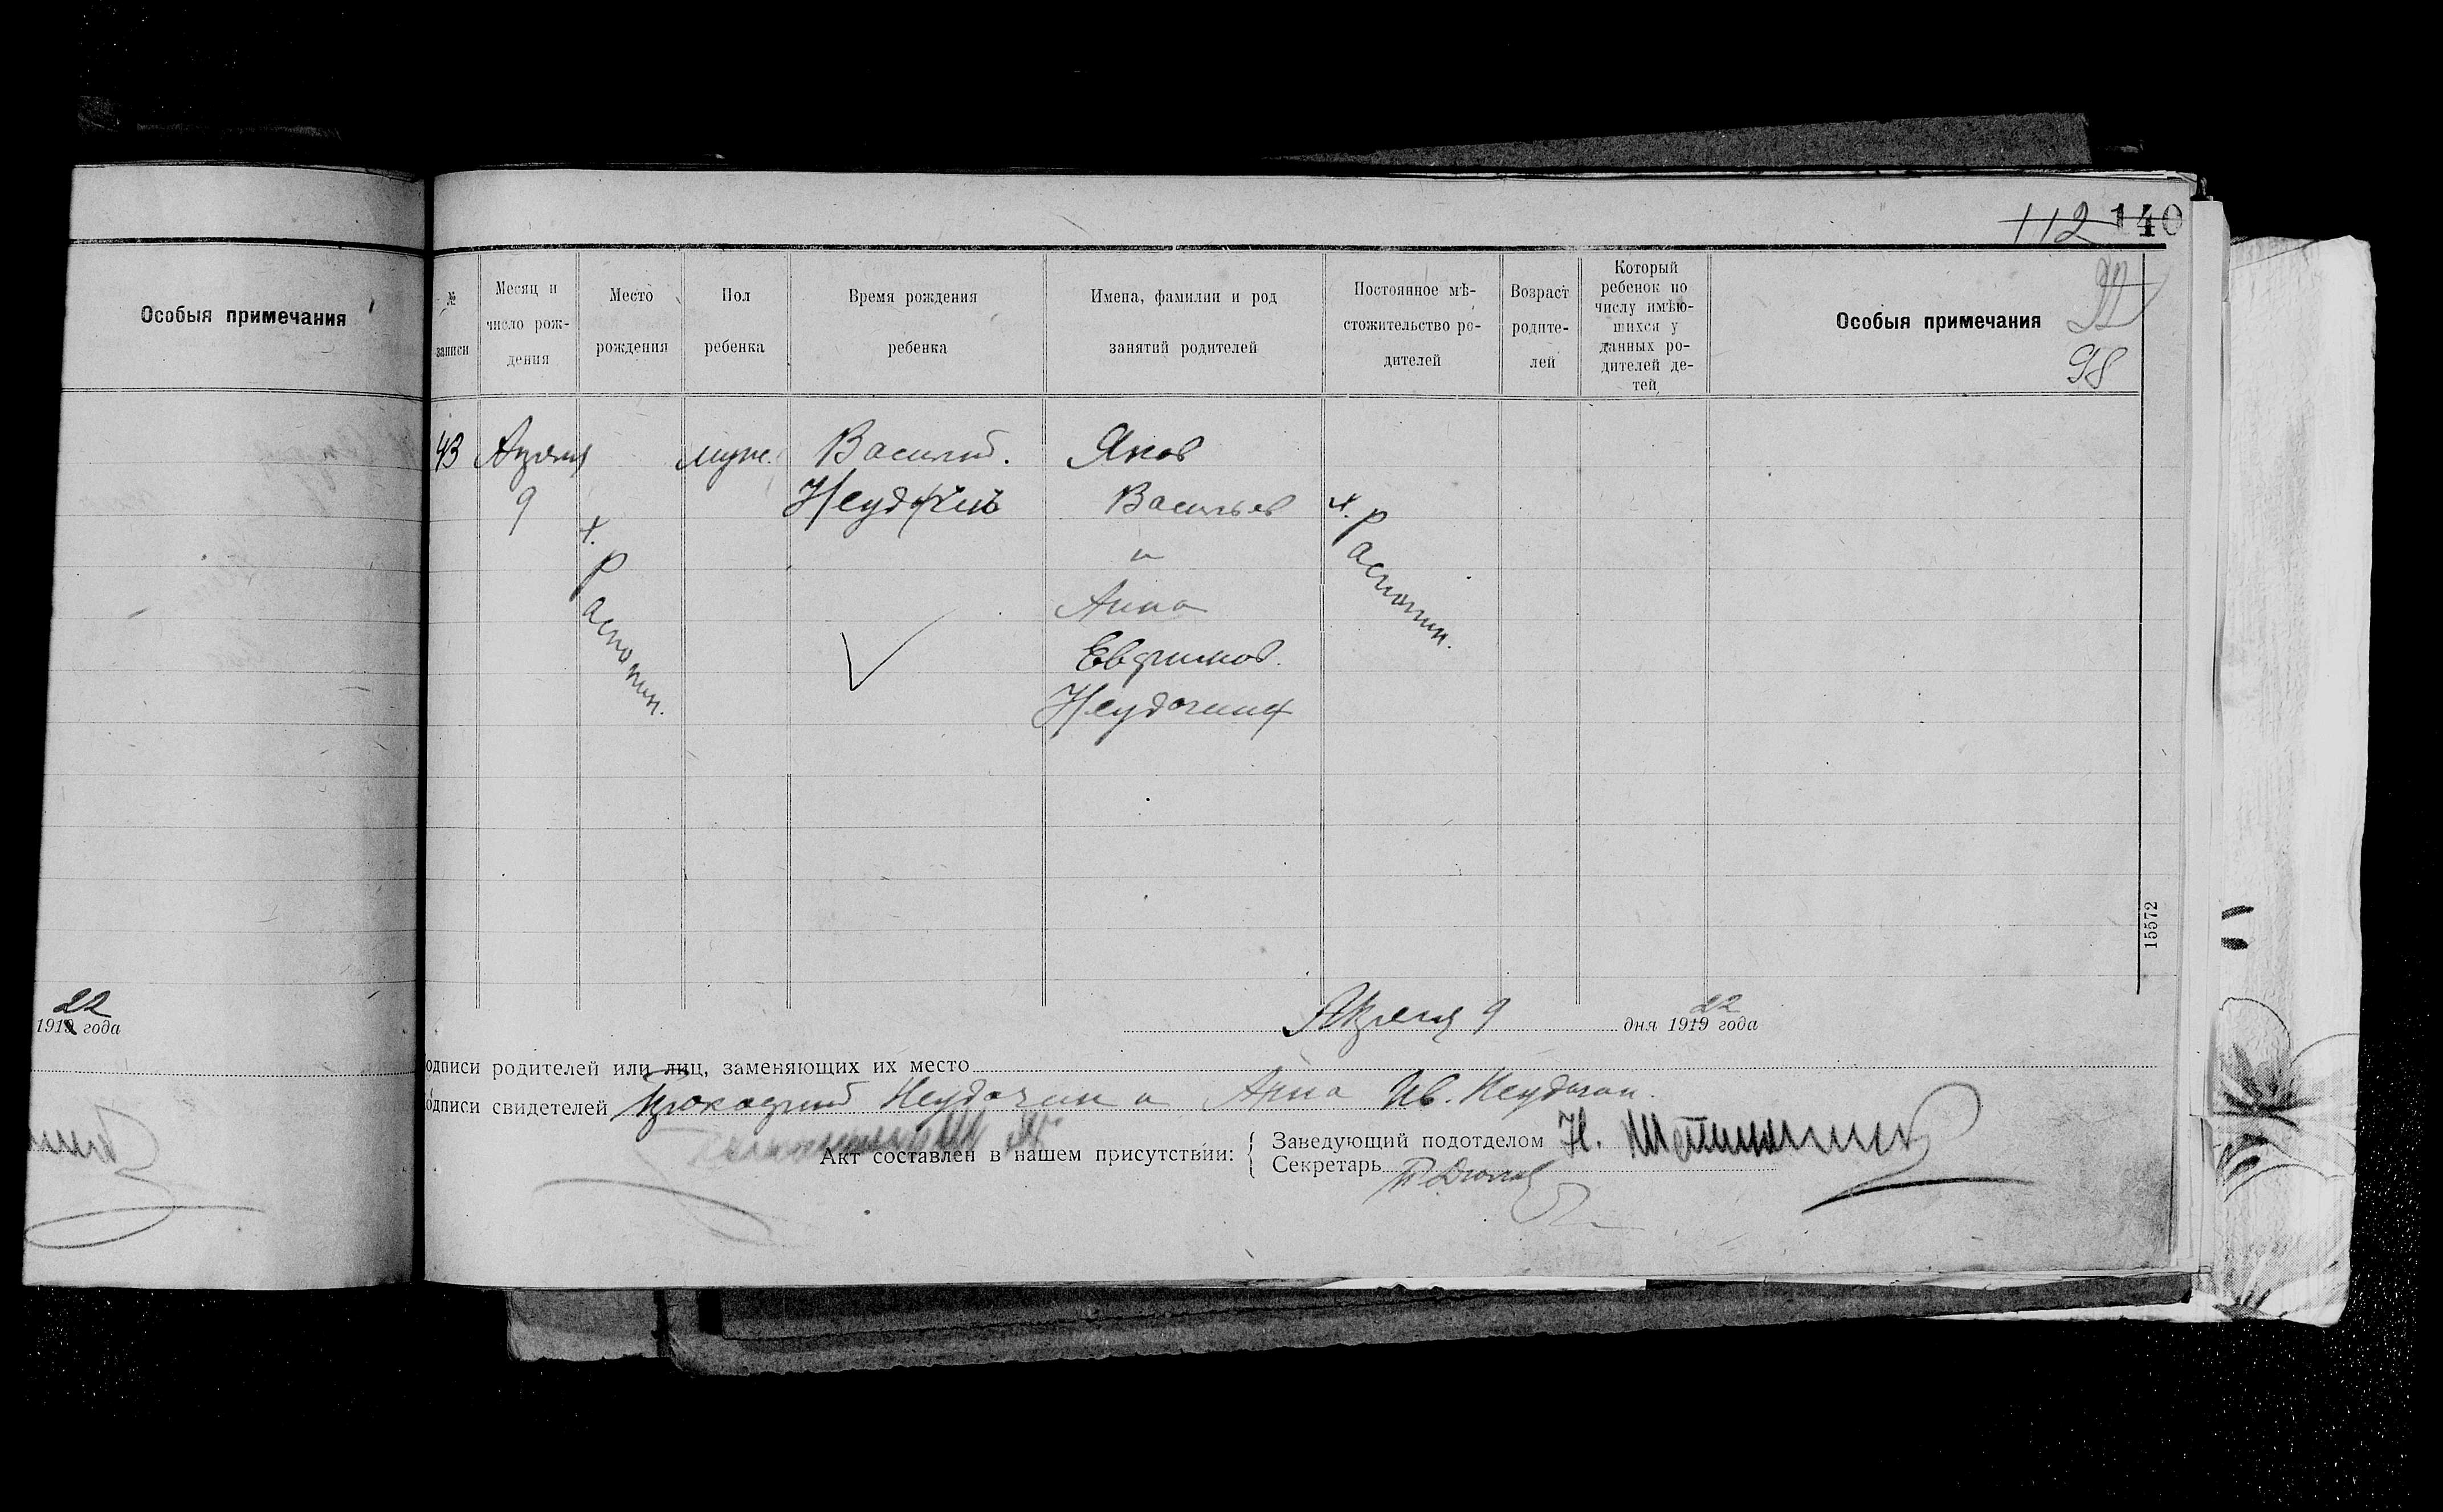 112 140
Особыя примечания
№ записи
Месяц и число рождения
Место рождения
Пол ребенка
Время рождения ребенка
Имена, фамилии и род занятий родителей
Постоянное мѣстожительство родителей
Возраст родителей
Который ребенок по числу имѣющихся у данных родителей детей
Особыя примечания
98
43 Апреля муж. Василий. Яков
9 Неудачинъ Васильев
х. Распопин.
и
х. Распопин.
Анна
Евфимов.
Неудачины
15572
22
1919 года
Апреля 9 дня 1919 года
22
одписи родителей или лиц, заменяющих их место
одписи свидетелей Неудачин и Анна Ив. Неудачин.
Акт составлен в нашем присутствии:
Заведующий подотделом Н.
Секретарь